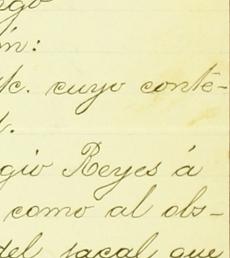 ego
ón:
tc. cuyo conte-
gio Reyes á
como al obs-
del jacal que